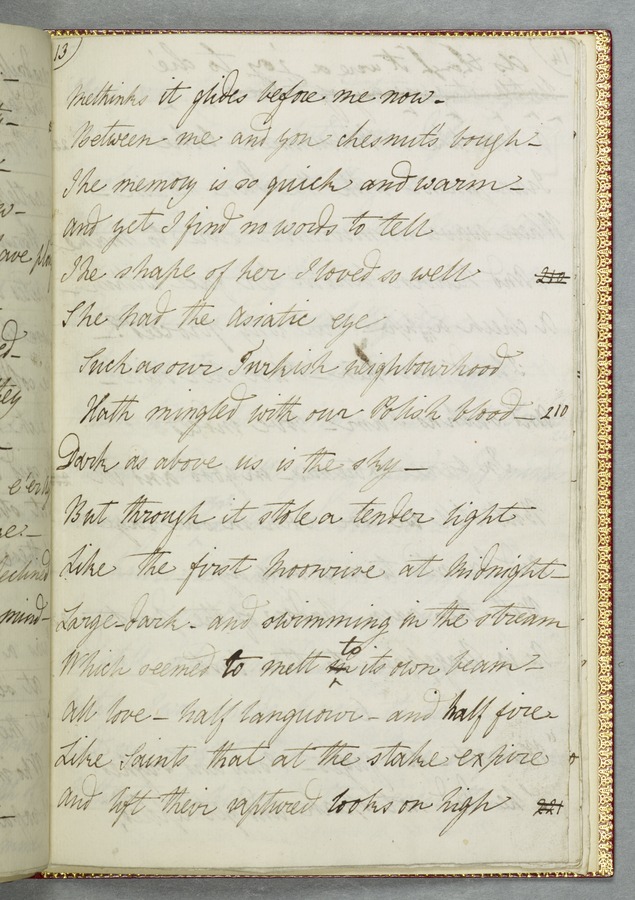 13
Methinks it glides before me now -
Between me and yon chesnut's bough -
The memory is so quick and warm -
and yet I find no words to tell
The shape of her I loved so well 210
She had the Asiatic eye
Such as our Turkish neighbourhood
Hath mingled with our Polish blood - 210
Dark as above us is the sky -
But through it stole a tender light
Like the first Moonrise at Midnight -
Large - dark - and swimming in the stream
Which seemed to melt in to its own beam -
All love - half languour - and half fire -
Like Saints that at the stake expire
and lift their raptured looks on high 221